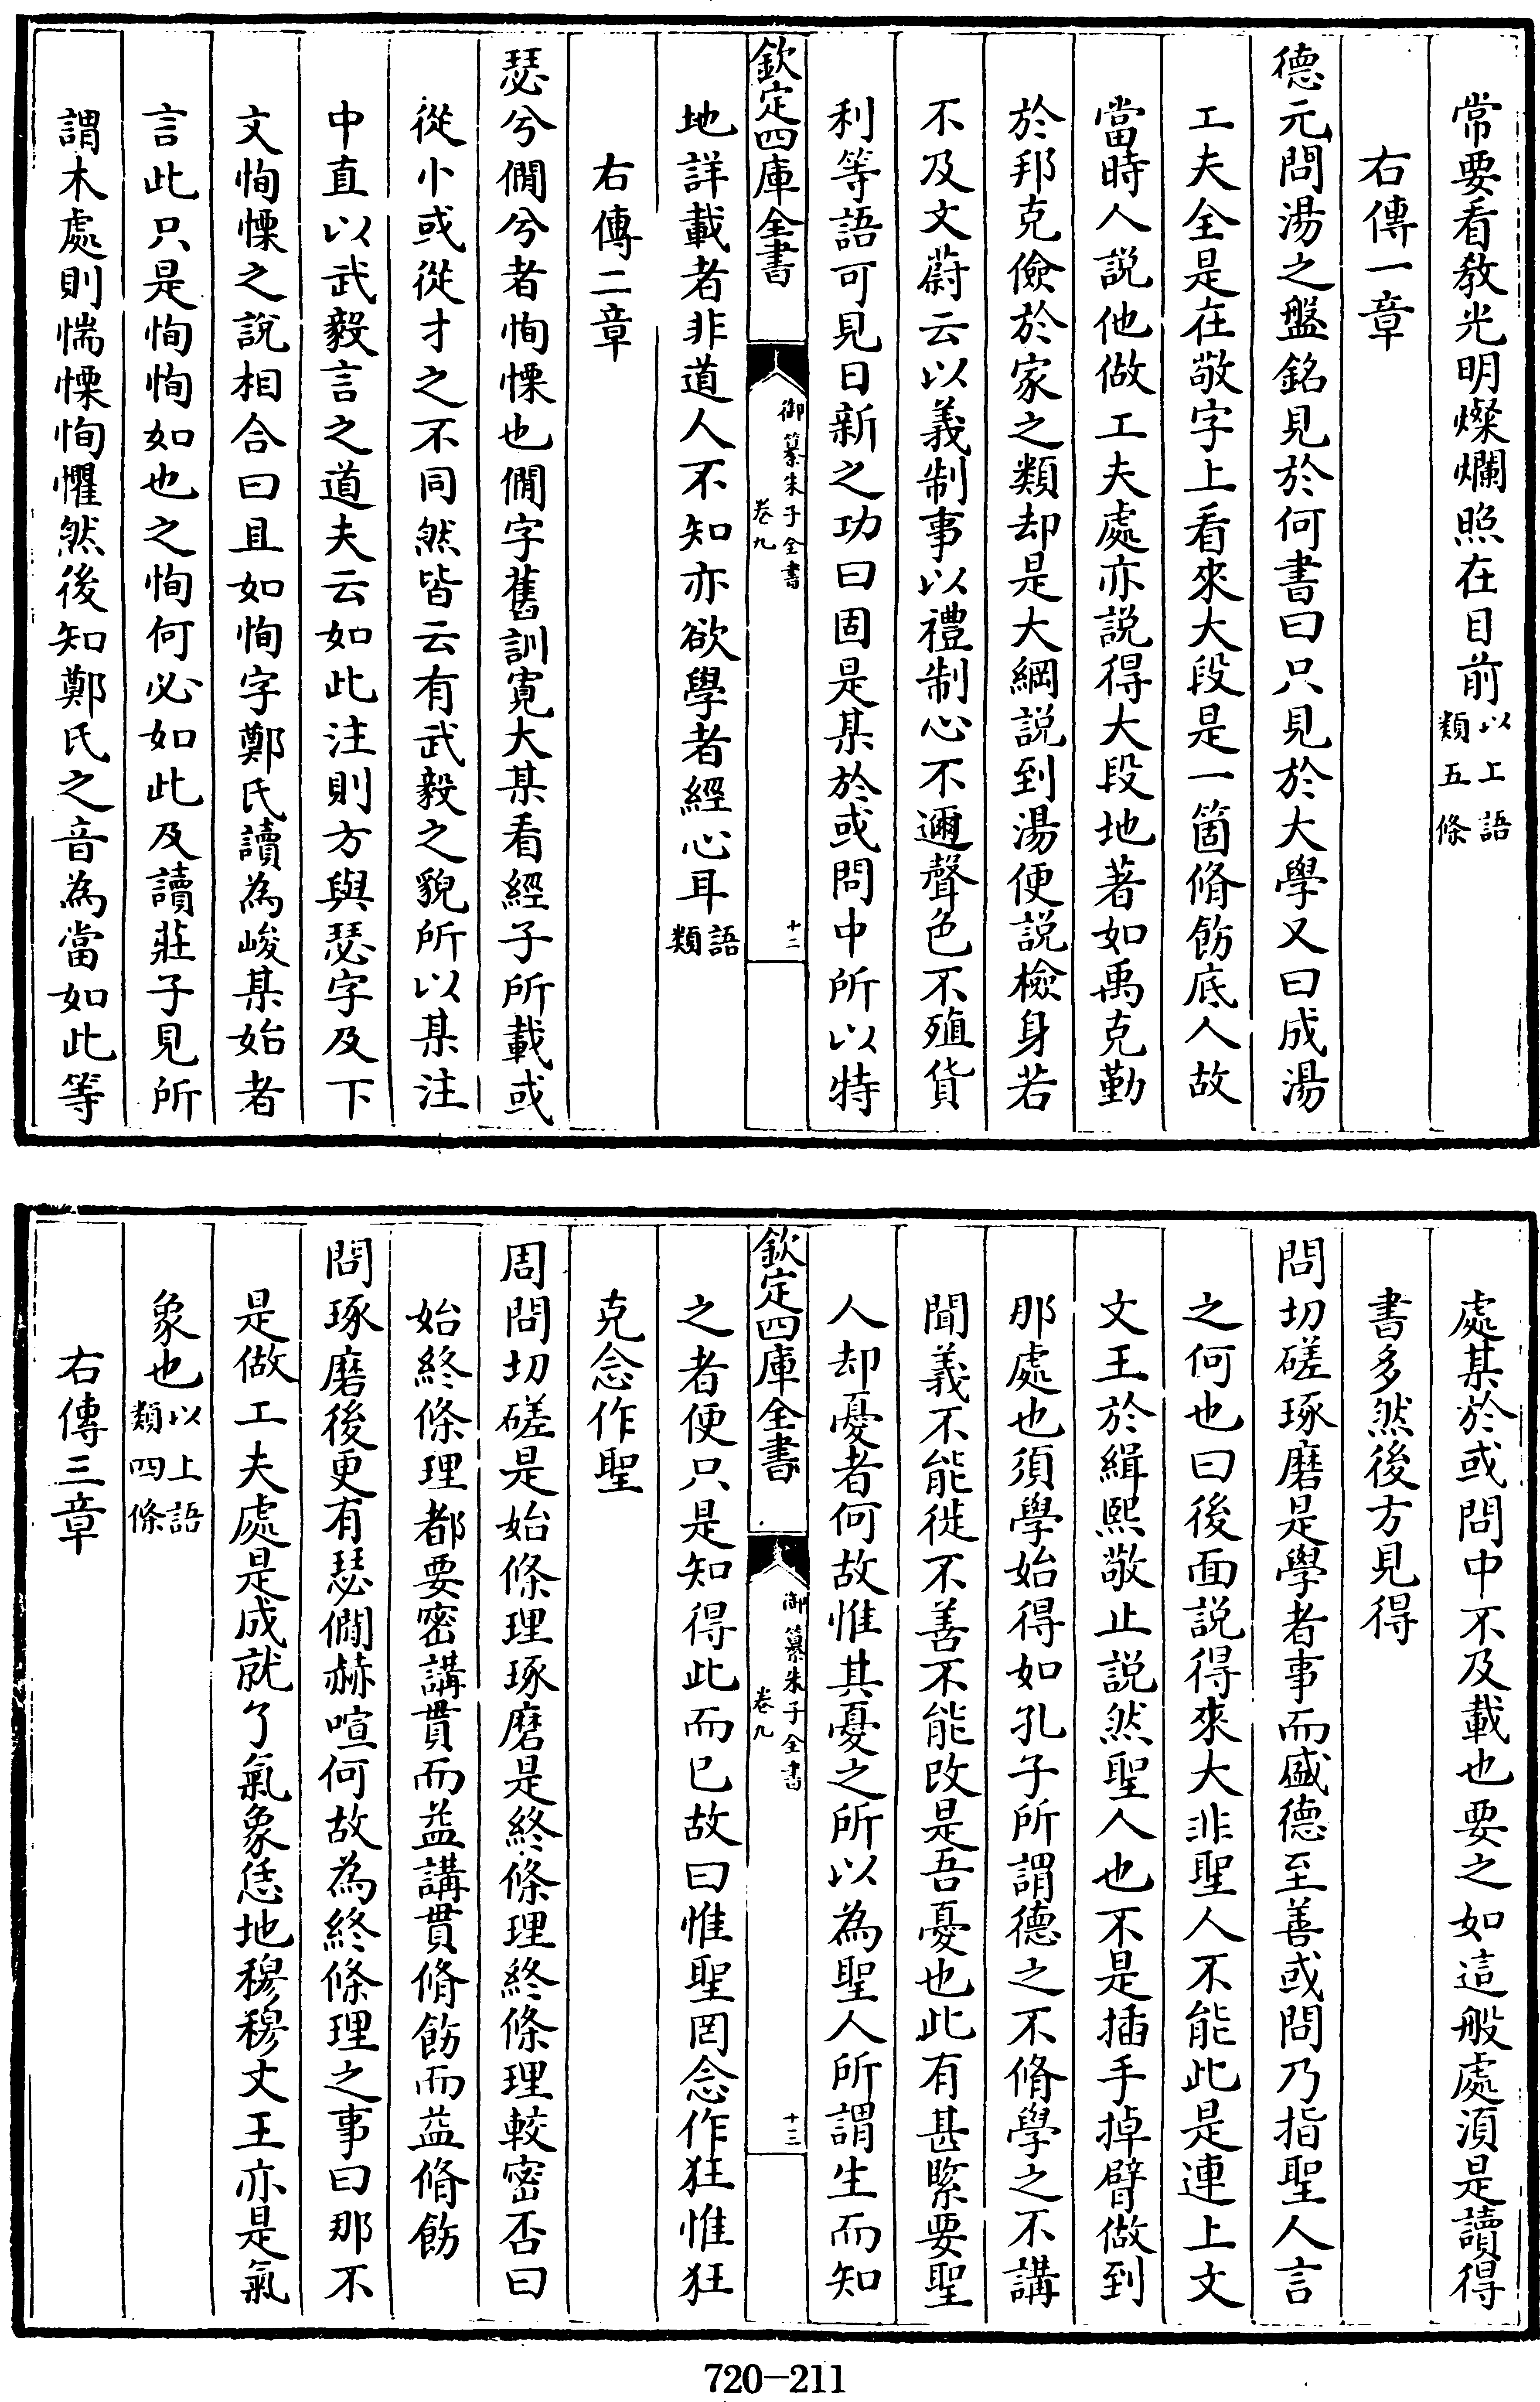 常要看教光明燦爛照在目前以上語類五條
右傳一章
德元問湯之盤銘見於何書曰只見於大學又曰成湯
工夫全是在敬字上看來大段是一箇脩飭底人故
當時人説他做工夫處亦説得大段地著如禹克勤
於邦克儉於家之類却是大綱説到湯便説檢身若
不及文蔚云以義制事以禮制心不邇聲色不殖貨
利等語可見日新之功曰固是某於或問中所以特
欽定四庫全書
御纂朱子全書
卷九
十二
地詳載者非道人不知亦欲學者經心耳語類
右傳二章
瑟兮僩兮者恂慄也僩字舊訓寛大某看經子所載或
從小或從才之不同然皆云有武毅之貌所以某注
中直以武毅言之道夫云如此注則方與瑟字及下
文恂慄之説相合曰且如恂字鄭氏讀為峻某始者
言此只是恂恂如也之恂何必如此及讀莊子見所
謂木處則惴慄恂懼然後知鄭氏之音為當如此等
處某於或問中不及載也要之如這般處須是讀得
書多然後方見得
問切磋琢磨是學者事而盛德至善或問乃指聖人言
之何也曰後面説得來大非聖人不能此是連上文
文王於緝熙敬止説然聖人也不是插手掉臂做到
那處也須學始得如孔子所謂德之不脩學之不講
聞義不能徙不善不能改是吾憂也此有甚緊要聖
人却憂者何故惟其憂之所以為聖人所謂生而知
欽定四庫全書
御纂朱子全書
卷九
十三
之者便只是知得此而已故曰惟聖罔念作狂惟狂
克念作聖
周問切磋是始條理琢磨是終條理終條理較密否曰
始終條理都要密講貫而益講貫脩飭而益脩飭
問琢磨後更有瑟僩赫喧何故為終條理之事曰那不
是做工夫處是成就了氣象恁地穆穆文王亦是氣
象也以上語類四條
右傳三章
720-211